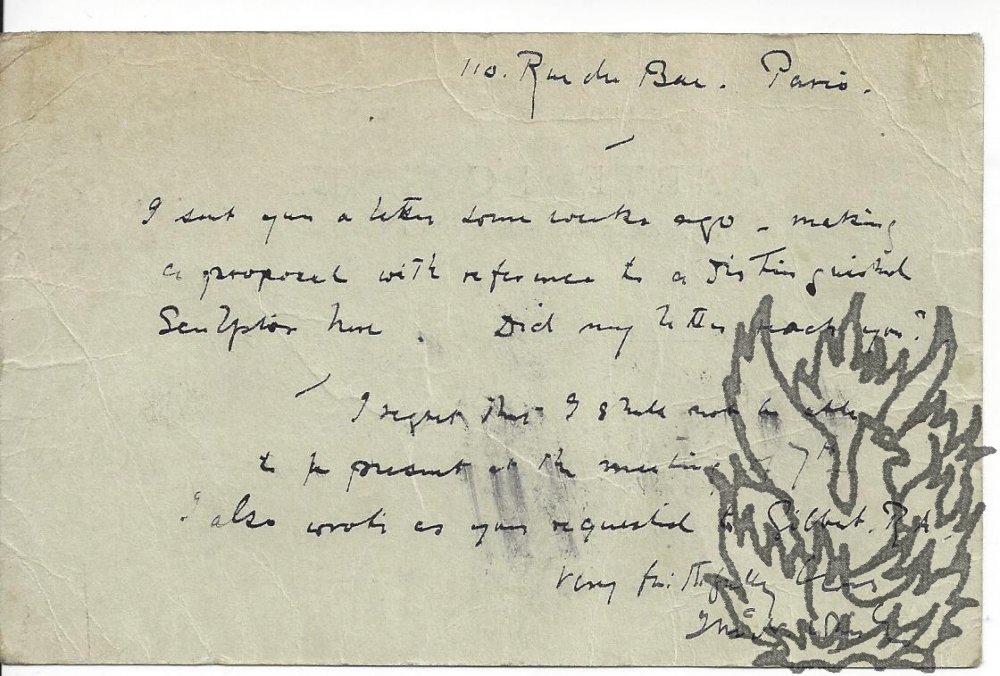 110. Rue du Bac. Paris.
I sent you a letter some weeks ago - making
a proposal with reference to a distinguished
Sculptor here. Did my letter reach you?
I regret that I shall not be able
to be present at the meeting 7th
I also wrote as you requested to Gilbert. RA.
Very faithfully Yours